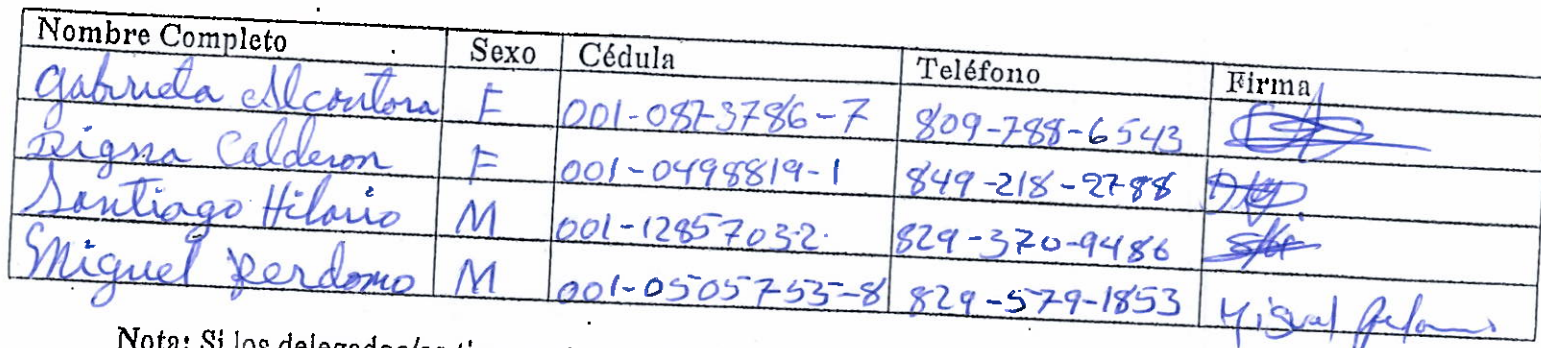 Nombre Completo Sexo Cédula Teléfono Firma
Gabriela Alcantara F 001-0873786-7 809-788-6543
Digna Calderon F 001-0498819-1 849-218-2788
Santiago Hilario M 001-12857032. 829-370-9486
Miguel Perdomo M 001-0505753-8 829-579-1853 Miguel
Nota: Si los delegados/as